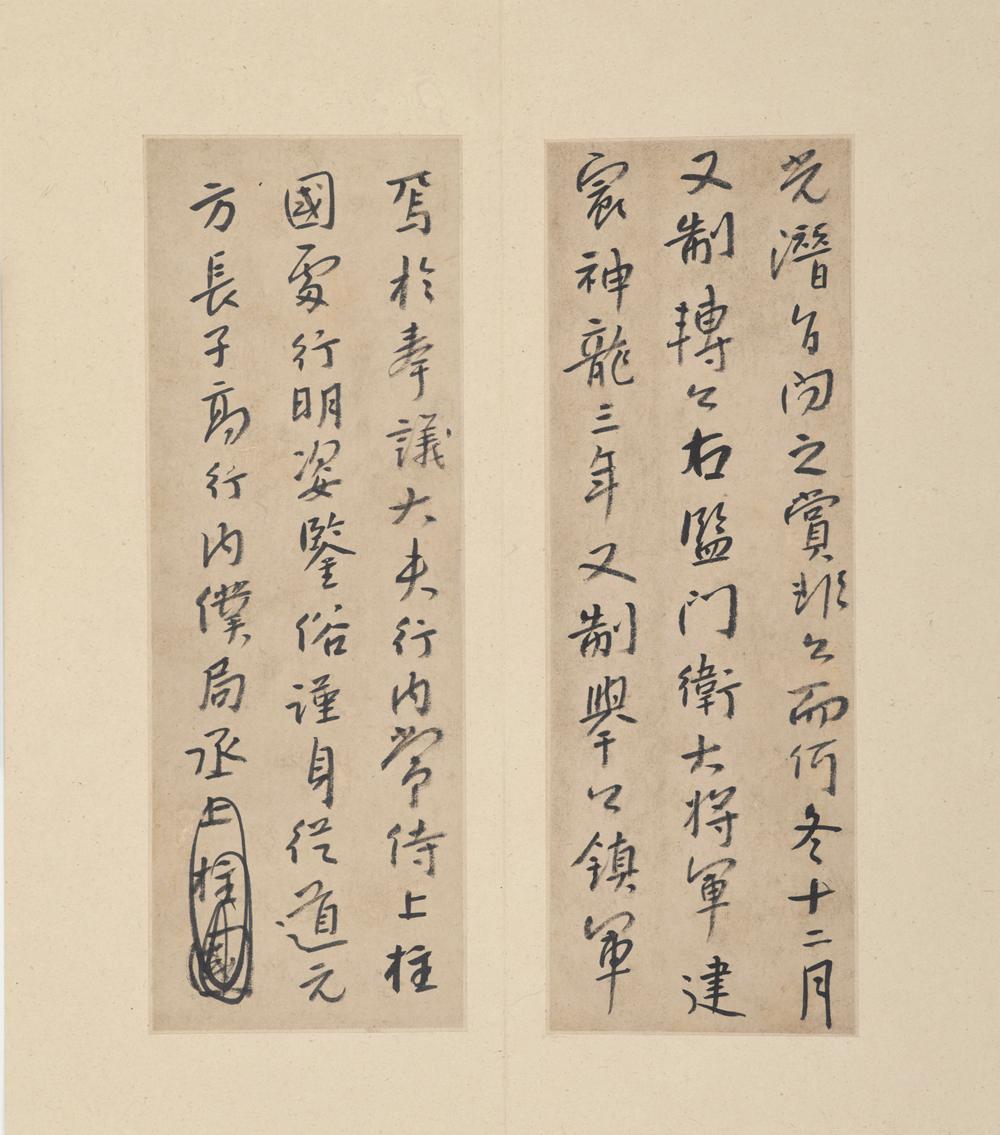 光潛旨問之賞非公而何冬十二月
又制轉公右監門衛大將軍建
神龍三年又制舉公鎮軍
焉於奉議大夫行内常侍上柱
國行明姿鑒俗謹身從道元
方長子高行内僕局丞上柱國